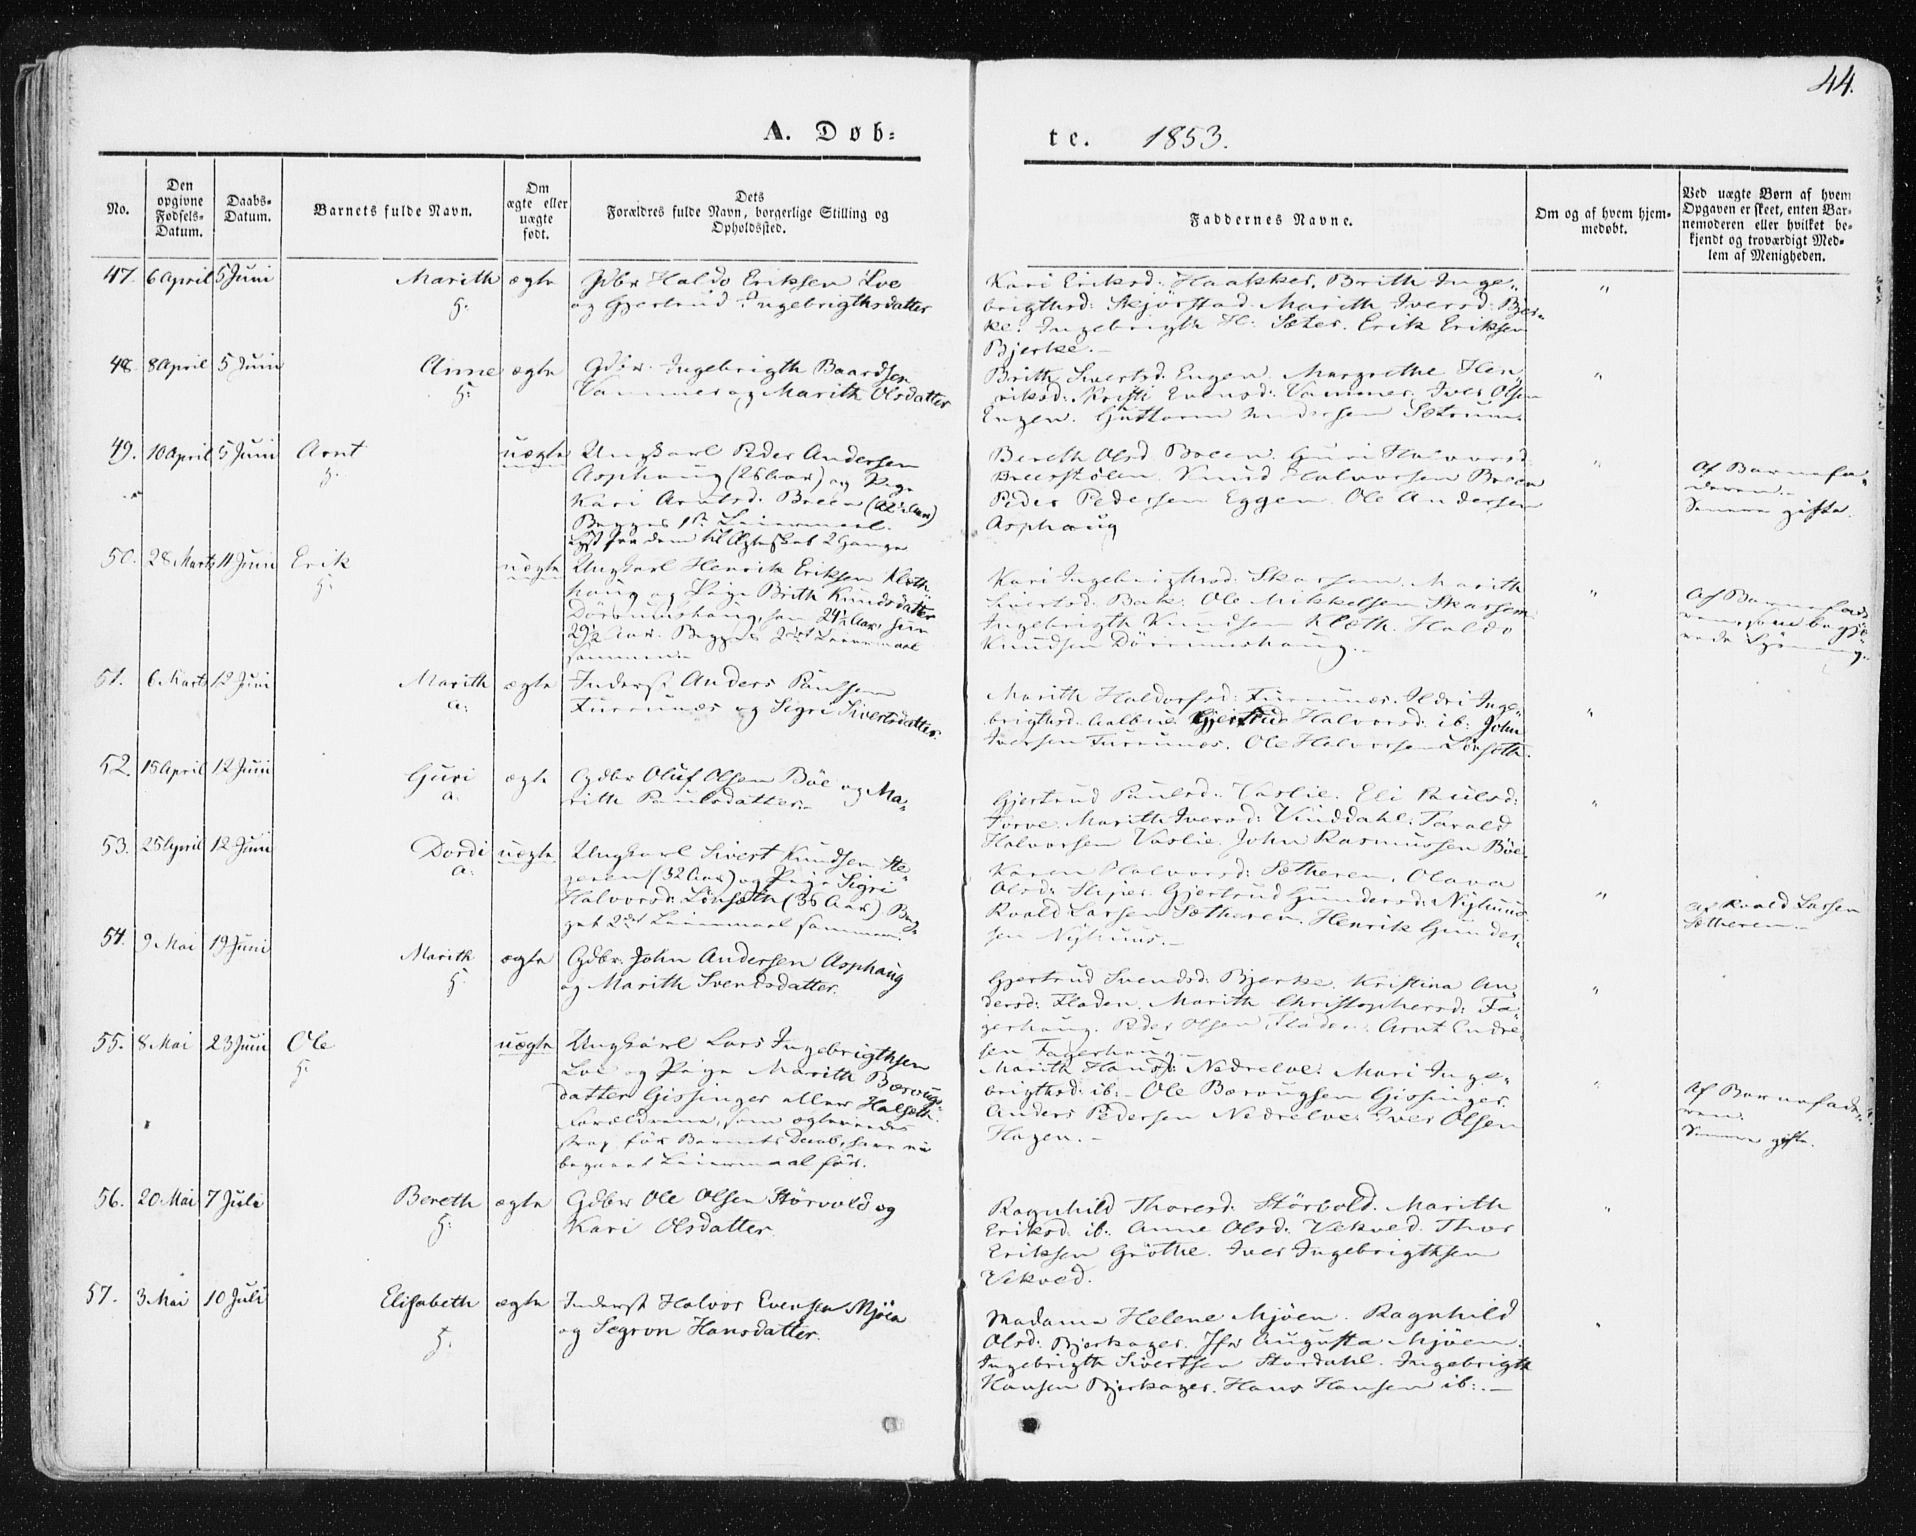 44.
A. Døb=
te. 1853.
No.
Den opgivne Fødsels-Datum.
Daabs-Datum.
Barnets fulde Navn.
Om ægte eller uægte født.
Dets Forældres fulde Navn, borgerlige Stilling og Opholdssted.
Faddernes Navne.
Om og af hvem hjem-medøbt.
Ved uægte Børn af hvem Opgaven er skeet, enten Bar-nemoderen eller hvilket be-kjendt og troværdigt Med-lem af Menigheden.
47. 6 April 5 Juni Marith ægte
h:
Haldo Eriksen Lve
og Gjertrud Ingebrigthsdatter
Kari Eriksd: Haakker, Brith Inge-
brigthsd: Skjørstad. Marith Iversd: Bjer-
ke. Ingebrigth H: Sæter. Erik Eriksen
Bjerke.-
"
48. 8 April 5 Juni Anne ægte
h:
Gdbr. Ingebrigth Baardsen
Vammer og Marith Olsdatter
Brith Sivertsd. Engen. Margrethe Hen-
riksd: Kristi Evensd: Vammer. Iver Olsen
Engen. Guttorm Andersen Sætrum.
"
49. 10 April 5 Juni Arnt uægte
h.
Ungkarl Peder Andersen
Asphaug (26 Aar) og Pige
Kari Arntsd: Breen (22½ Aar)
Begges 1ste Leiermaal.
lyst for dem til Ægteskab 2 Gange
Bereth Olsd Breen. Guri Halvorsd
Breestølen. Knud Halvorsen Breen
Peder Pedersen Eggen. Ole Andersen
Asphaug
"
Af Barnefa-
deren.-
Senere gifte.
50. 28 Marts 11 Juni Erik uægte
h:
Ungkarl Henrik Eriksen Kleth-
haug og Pige Brith Knudsdatter
Dørrumshaug, han 24½ Aar, hun
29½ Aar. Begges 2det Leiermaal
sammen.-
Kari Ingebrigthsd: Skarsem. Marith
Sivertsd: Bak. Ole Mikkelsen Skarsem
Ingebrigth Knudsen Kleth. Haldo
Knudsen Dørrumshaug.-
"
Af Barnefade-
ren, som begjæ-
rede
51. 6 Marts 12 Juni Marith ægte
a:
Inderst Anders Paulsen
Furrunæs og Sigri Sivertsdatter.
Marith Haldorsd: Furrunæs. Ildri Inge-
brigthsd. Aalbue. Gjertrud Halvorsd: ib: John
Iversen Furrunæs. Ole Halvorsen Lønseth.
"
52. 15 April 12 Juni Guri ægte
a.
Gdbr Oluf Olsen Bøe og Ma-
rith Paulsdatter.-
Gjertrud Paulsd. Vaslie. Eli Paulsd:
Torve. Marith Iversd: Vinddahl. Tarald
Halvorsen Vaslie. John Rasmussen Bøe.
"
53. 25 April 12 Juni Dordi uægte
a:
Ungkarl Sivert Knudsen Ste-
geren (32 Aar) og Pige Sigri
Halvorsd: Lønseth (36 Aar) Beg-
ges 2det Leiermaal sammen.
Karen Halvorsd: Sætheren. Olava
Olsd: Skjer. Gjertrud Gundersd: Nyhuus.
Roald Larsen Sætheren. Henrik Gunder-
sen Nyhuus.-
"
Af Roald Larsen
Sætheren.-
54. 9 Mai 19 Juni Marith ægte
h.
Gdbr. John Andersen Asphaug
og Marith Svendsdatter.
Gjertrud Svendsd: Bjerke. Kristina An-
dersd: Fladen. Marith Christophersd: Fa-
gerhaug. Peder Olsen Fladen. Arnt Endre-
sen Fagerhaug.-
"
55. 8 Mai 23 Juni Ole uægte
h:
Ungkarl Lars Ingebrigthsen
Lve og Pige Marith Børvugs-
datter Gissinger eller Halseth.
Forældrene, som ægteviedes
strax før Barnets Daab, have ei
begaaet Leiermaal før.
Marith Hansd: Nedrelve. Mari Inge-
brigthsd: ib:- Ole Børvugsen Gissinger.
Anders Pedersen Nedrelve. Iver Olsen
Hagen.-
"
Af Barnefade-
ren.
Senere gifte.
56. 20 Mai 7 Juli Bereth ægte
h:
Gdbr Ole Olsen Størvold og
Kari Olsdatter.
Ragnhild Thoresd: Størvold. Marith
Eriksd: ib: Anne Olsd: Vekved. Thor
Eriksen Grøthe. Iver Ingebrigthsen
Vekved.
"
57. 3 Mai 10 Juli Elisabeth ægte
h.
Inderst Halvor Evensen Mjøen
og Segron Hansdatter.
Madame Helene Mjøen. Ragnhild
Olsd: Bjerkager. Jfr Augusta Mjøen.
Ingebrigth Sivertsen Stordahl. Ingebrigth
Hansen Bjerkager. Hans Hansen ib:.-
"